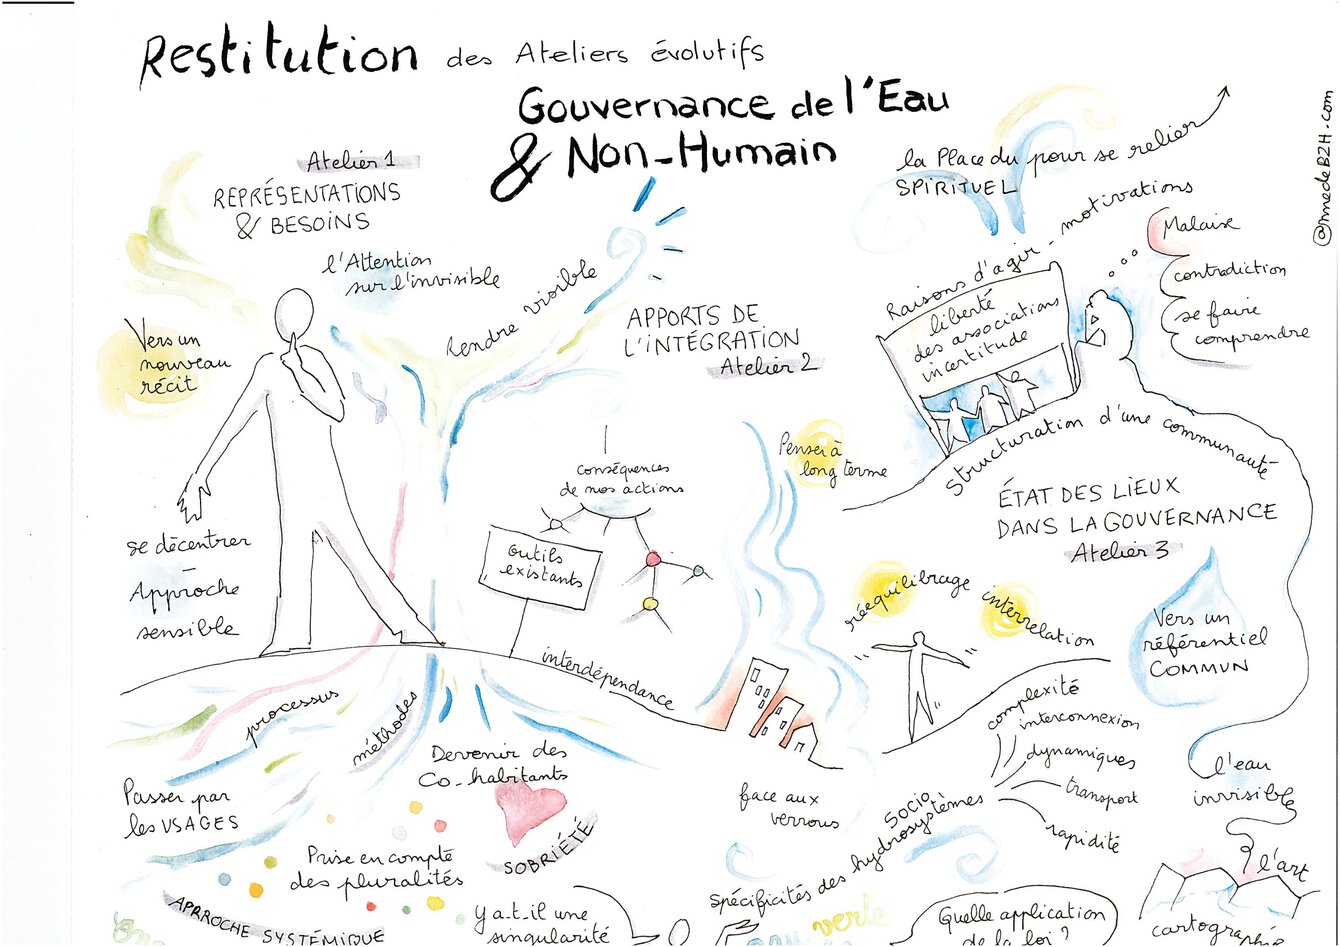 Restitution des Ateliers évolutifs
Gouvernance de l'Eau
& Non-Humain
@nnedeB2H.com
Atelier 1
REPRÉSENTATIONS
& BESOINS
l'Attention
sur l'invisible
Vers un
nouveau
récit
Rendre visible
se décentrer
-
Approche
sensible
APPORTS DE
L'INTÉGRATION
Atelier 2
conséquences
de nos actions
Outils
existants
interdépendance
Penser à
long terme
processus
méthodes
Passer par
les USAGES
Devenir des
Co-habitants
SOBRIÉTÉ
Prise en compte
des pluralités
APRROCHE SYSTÉMIQUE
y a.t-il une
singularité
face aux
verrous
la Place du pour se relier
SPIRITUEL
Raisons d'agir - motivations
liberté
des associations
incertitude
Malaise
contradiction
se faire
comprendre
Structuration d'une communauté
ÉTAT DES LIEUX
DANS LA GOUVERNANCE
Atelier 3
rééquilibrage interrelation
Vers un
référentiel
COMMUN
complexité
interconnexion
dynamiques
transport
rapidité
SOCIO
spécificités des hydrosystèmes
l'eau
invisible
l'art
cartographie
verte
Quelle application
de la loi ?